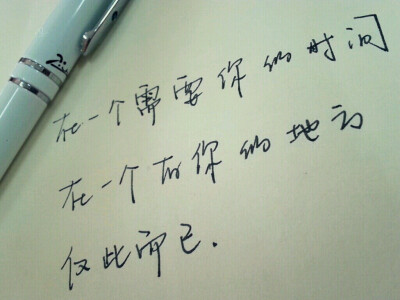 在一个需要你的时间
在一个有你的地方
仅此而已.